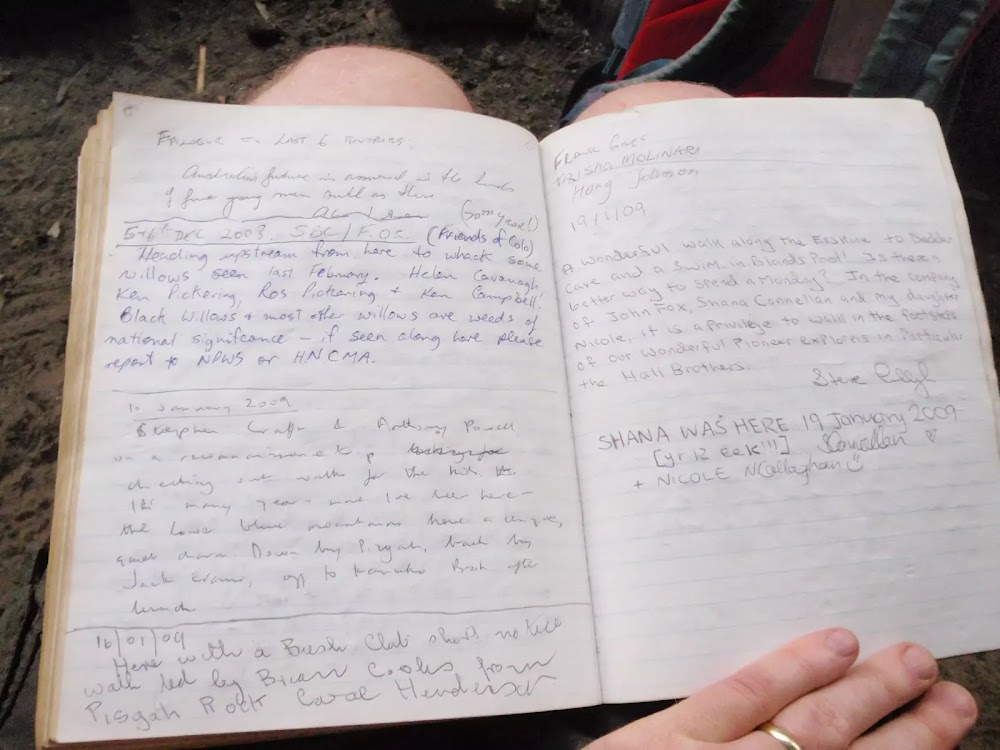 LAST 6 ENTRIES.
Australia's future is assured in the hands
of fine young men such as these
(Some years!)
5+6th DEC 2003. SBC/F.O.C. (Friends of Colo)
Heading upstream from here to whack some
willows seen last February. Helen Cavanagh,
Ken Pickering, Ros Pickering + Ken Campbell.
Black Willows & most other willows are weeds of
national significance – if seen along here please
report to NPWS or HNCMA.
10 January 2009
Stephen & Anthony
on a reconnaissance trip
checking out walks for the kids.
It's many years since I've been here –
the lower blue mountains have a unique,
quiet charm. Down by Pisgah, back by
Jack Evans, off to Brook after
lunch
16/01/09
Here with a Bush Club short notice
walk led by Brian from
Pisgah Rock Carol Henderson
MOLINARI
19/1/09
A wonderful walk along the Erskine to Dadder
cave and a swim in Eslands Pool! Is there a
better way to spend a Monday? In the company
of John Fox, Shana Connellan and my daughter
Nicole, it is a privilege to walk in the footsteps
of our wonderful Pioneer explorers in particular
the Hall Brothers.
Steve
SHANA WAS HERE 19 January 2009
[yr 12 eek!!!] SConnellan ♡
+ NICOLE NCallaghan ☺